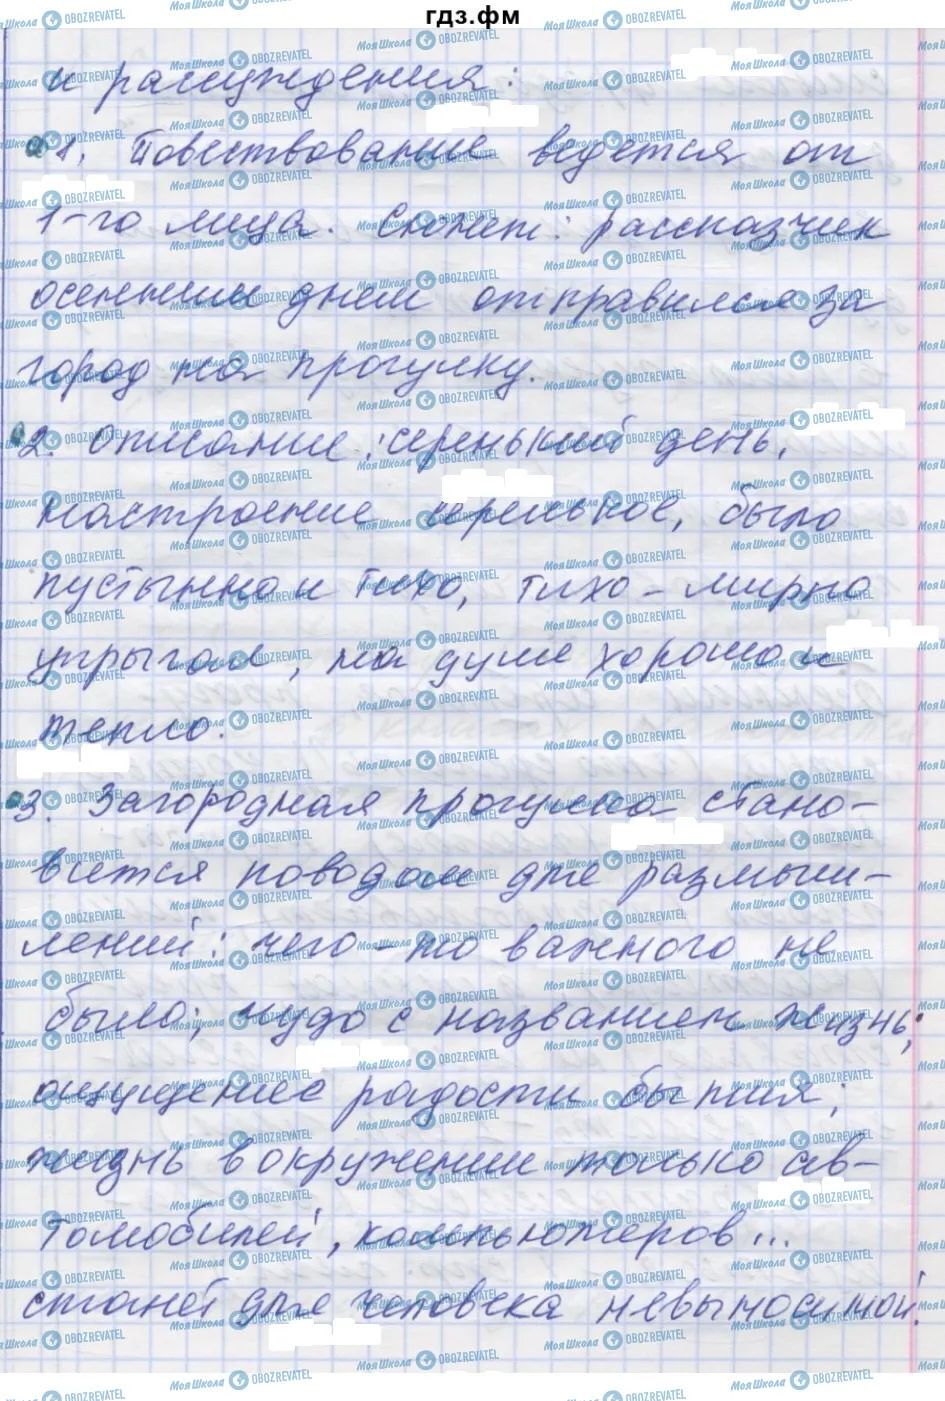 гдз.фм
и рассуждения:
1. Повествование ведется от
1-го лица. Сюжет: рассказчик
осенним днем отправился за
город на прогулку.
2. Описание: серенький день,
настроение серенькое, было
пустынно и тихо, тихо-мирно
, на душе хорошо и
тепло.
3. Загородная прогулка стано-
вится поводом для размыш-
лений: чего-то важного не
было; чудо с названием жизнь;
ощущение радости бытия;
жизнь в окружении только ав-
томобилей, компьютеров...
станет для человека невыносимой.
МояШкола OBOZREVATEL